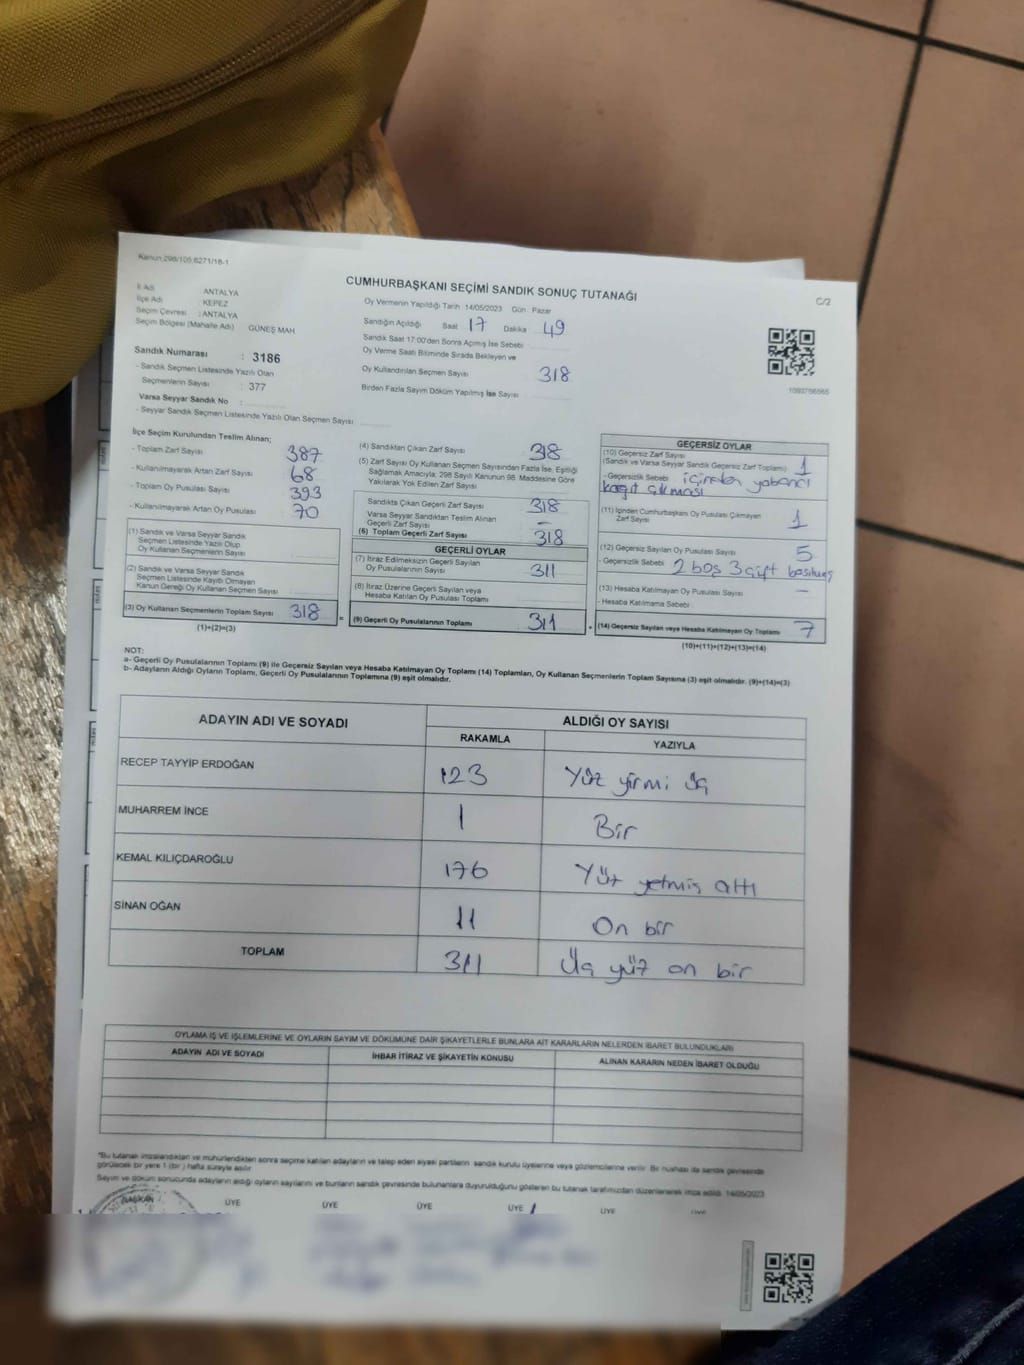 Kanun:298/105:6271/18-1
CUMHURBAŞKANI SEÇİMİ SANDIK SONUÇ TUTANAĞI
C/2
İl Adı : ANTALYA
İlçe Adı : KEPEZ
Seçim Çevresi : ANTALYA
Seçim Bölgesi (Mahalle Adı) GÜNEŞ MAH
Sandık Numarası : 3186
- Sandık Seçmen Listesinde Yazılı Olan
Seçmenlerin Sayısı : 377
Varsa Seyyar Sandık No :
- Seyyar Sandık Seçmen Listesinde Yazılı Olan Seçmen Sayısı
Oy Vermenin Yapıldığı Tarih 14/05/2023 Gün : Pazar
Sandığın Açıldığı Saat 17 Dakika 49
Sandık Saat 17:00'den Sonra Açımış İse Sebebi
Oy Verme Saati Bitiminde Sırada Bekleyen ve
Oy Kullandırılan Seçmen Sayısı 318
Birden Fazla Sayım Döküm Yapılmış İse Sayısı
1093766565
İlçe Seçim Kurulundan Teslim Alınan;
- Toplam Zarf Sayısı 387
- Kullanılmayarak Artan Zarf Sayısı 68
- Toplam Oy Pusulası Sayısı 393
- Kullanılmayarak Artan Oy Pusulası 70
(1) Sandık ve Varsa Seyyar Sandık
Seçmen Listesinde Yazılı Olup
Oy Kullanan Seçmenlerin Sayısı
(2) Sandık ve Varsa Seyyar Sandık
Seçmen Listesinde Kayıtlı Olmayan
Kanun Gereği Oy Kullanan Seçmen Sayısı
(3) Oy Kullanan Seçmenlerin Toplam Sayısı 318
(1)+(2)=(3)
(4) Sandıktan Çıkan Zarf Sayısı 318
(5) Zarf Sayısı Oy Kullanan Seçmen Sayısından Fazla İse, Eşitliği
Sağlamak Amacıyla, 298 Sayılı Kanunun 98. Maddesine Göre
Yakılarak Yok Edilen Zarf Sayısı
Sandıkta Çıkan Geçerli Zarf Sayısı 318
Varsa Seyyar Sandıktan Teslim Alınan
Geçerli Zarf Sayısı –
(6) Toplam Geçerli Zarf Sayısı 318
GEÇERLİ OYLAR
(7) İtiraz Edilmeksizin Geçerli Sayılan
Oy Pusulalarının Sayısı 311
(8) İtiraz Üzerine Geçerli Sayılan veya
Hesaba Katılan Oy Pusulası Toplamı
(9) Geçerli Oy Pusulalarının Toplamı 311
GEÇERSİZ OYLAR
(10) Geçersiz Zarf Sayısı
(Sandık ve Varsa Seyyar Sandık Geçersiz Zarf Toplamı) 1
- Geçersizlik Sebebi içinden yabancı
kağıt çıkması
(11) İçinden Cumhurbaşkanı Oy Pusulası Çıkmayan
Zarf Sayısı 1
(12) Geçersiz Sayılan Oy Pusulası Sayısı 5
- Geçersizlik Sebebi 2 boş 3 çift basılmış
(13) Hesaba Katılmayan Oy Pusulası Sayısı –
- Hesaba Katılmama Sebebi
(14) Geçersiz Sayılan veya Hesaba Katılmayan Oy Toplamı 7
(10)+(11)+(12)+(13)=(14)
NOT:
a- Geçerli Oy Pusulalarının Toplamı (9) ile Geçersiz Sayılan veya Hesaba Katılmayan Oy Toplamı (14) Toplamları, Oy Kullanan Seçmenlerin Toplam Sayısına (3) eşit olmalıdır. (9)+(14)=(3)
b- Adayların Aldığı Oyların Toplamı, Geçerli Oy Pusulalarının Toplamına (9) eşit olmalıdır.
ADAYIN ADI VE SOYADI ALDIĞI OY SAYISI
RAKAMLA YAZIYLA
RECEP TAYYİP ERDOĞAN 123 Yüz yirmi üç
MUHARREM İNCE 1 Bir
KEMAL KILIÇDAROĞLU 176 Yüz yetmiş altı
SİNAN OĞAN 11 On bir
TOPLAM 311 Üç yüz on bir
OYLAMA İŞ VE İŞLEMLERİNE VE OYLARIN SAYIM VE DÖKÜMÜNE DAİR ŞİKAYETLERLE BUNLARA AİT KARARLARIN NELERDEN İBARET BULUNDUKLARI
ADAYIN ADI VE SOYADI İHBAR İTİRAZ VE ŞİKAYETİN KONUSU ALINAN KARARIN NEDEN İBARET OLDUĞU
*Bu tutanak imzalandıktan ve mühürlendikten sonra seçime katılan adayların ve talep eden siyasi partilerin sandık kurulu üyelerine veya gözlemcilerine verilir. Bir nüshası da sandık çevresinde
görülecek bir yere 1 (bir) hafta süreyle asılır.
Sayım ve döküm sonucunda adayların aldığı oyların sayılarını ve bunların sandık çevresinde bulunanlara duyurulduğunu gösteren bu tutanak tarafımızdan düzenlenerek imza edildi. 14/05/2023
BAŞKAN ÜYE ÜYE ÜYE ÜYE ÜYE ÜYE